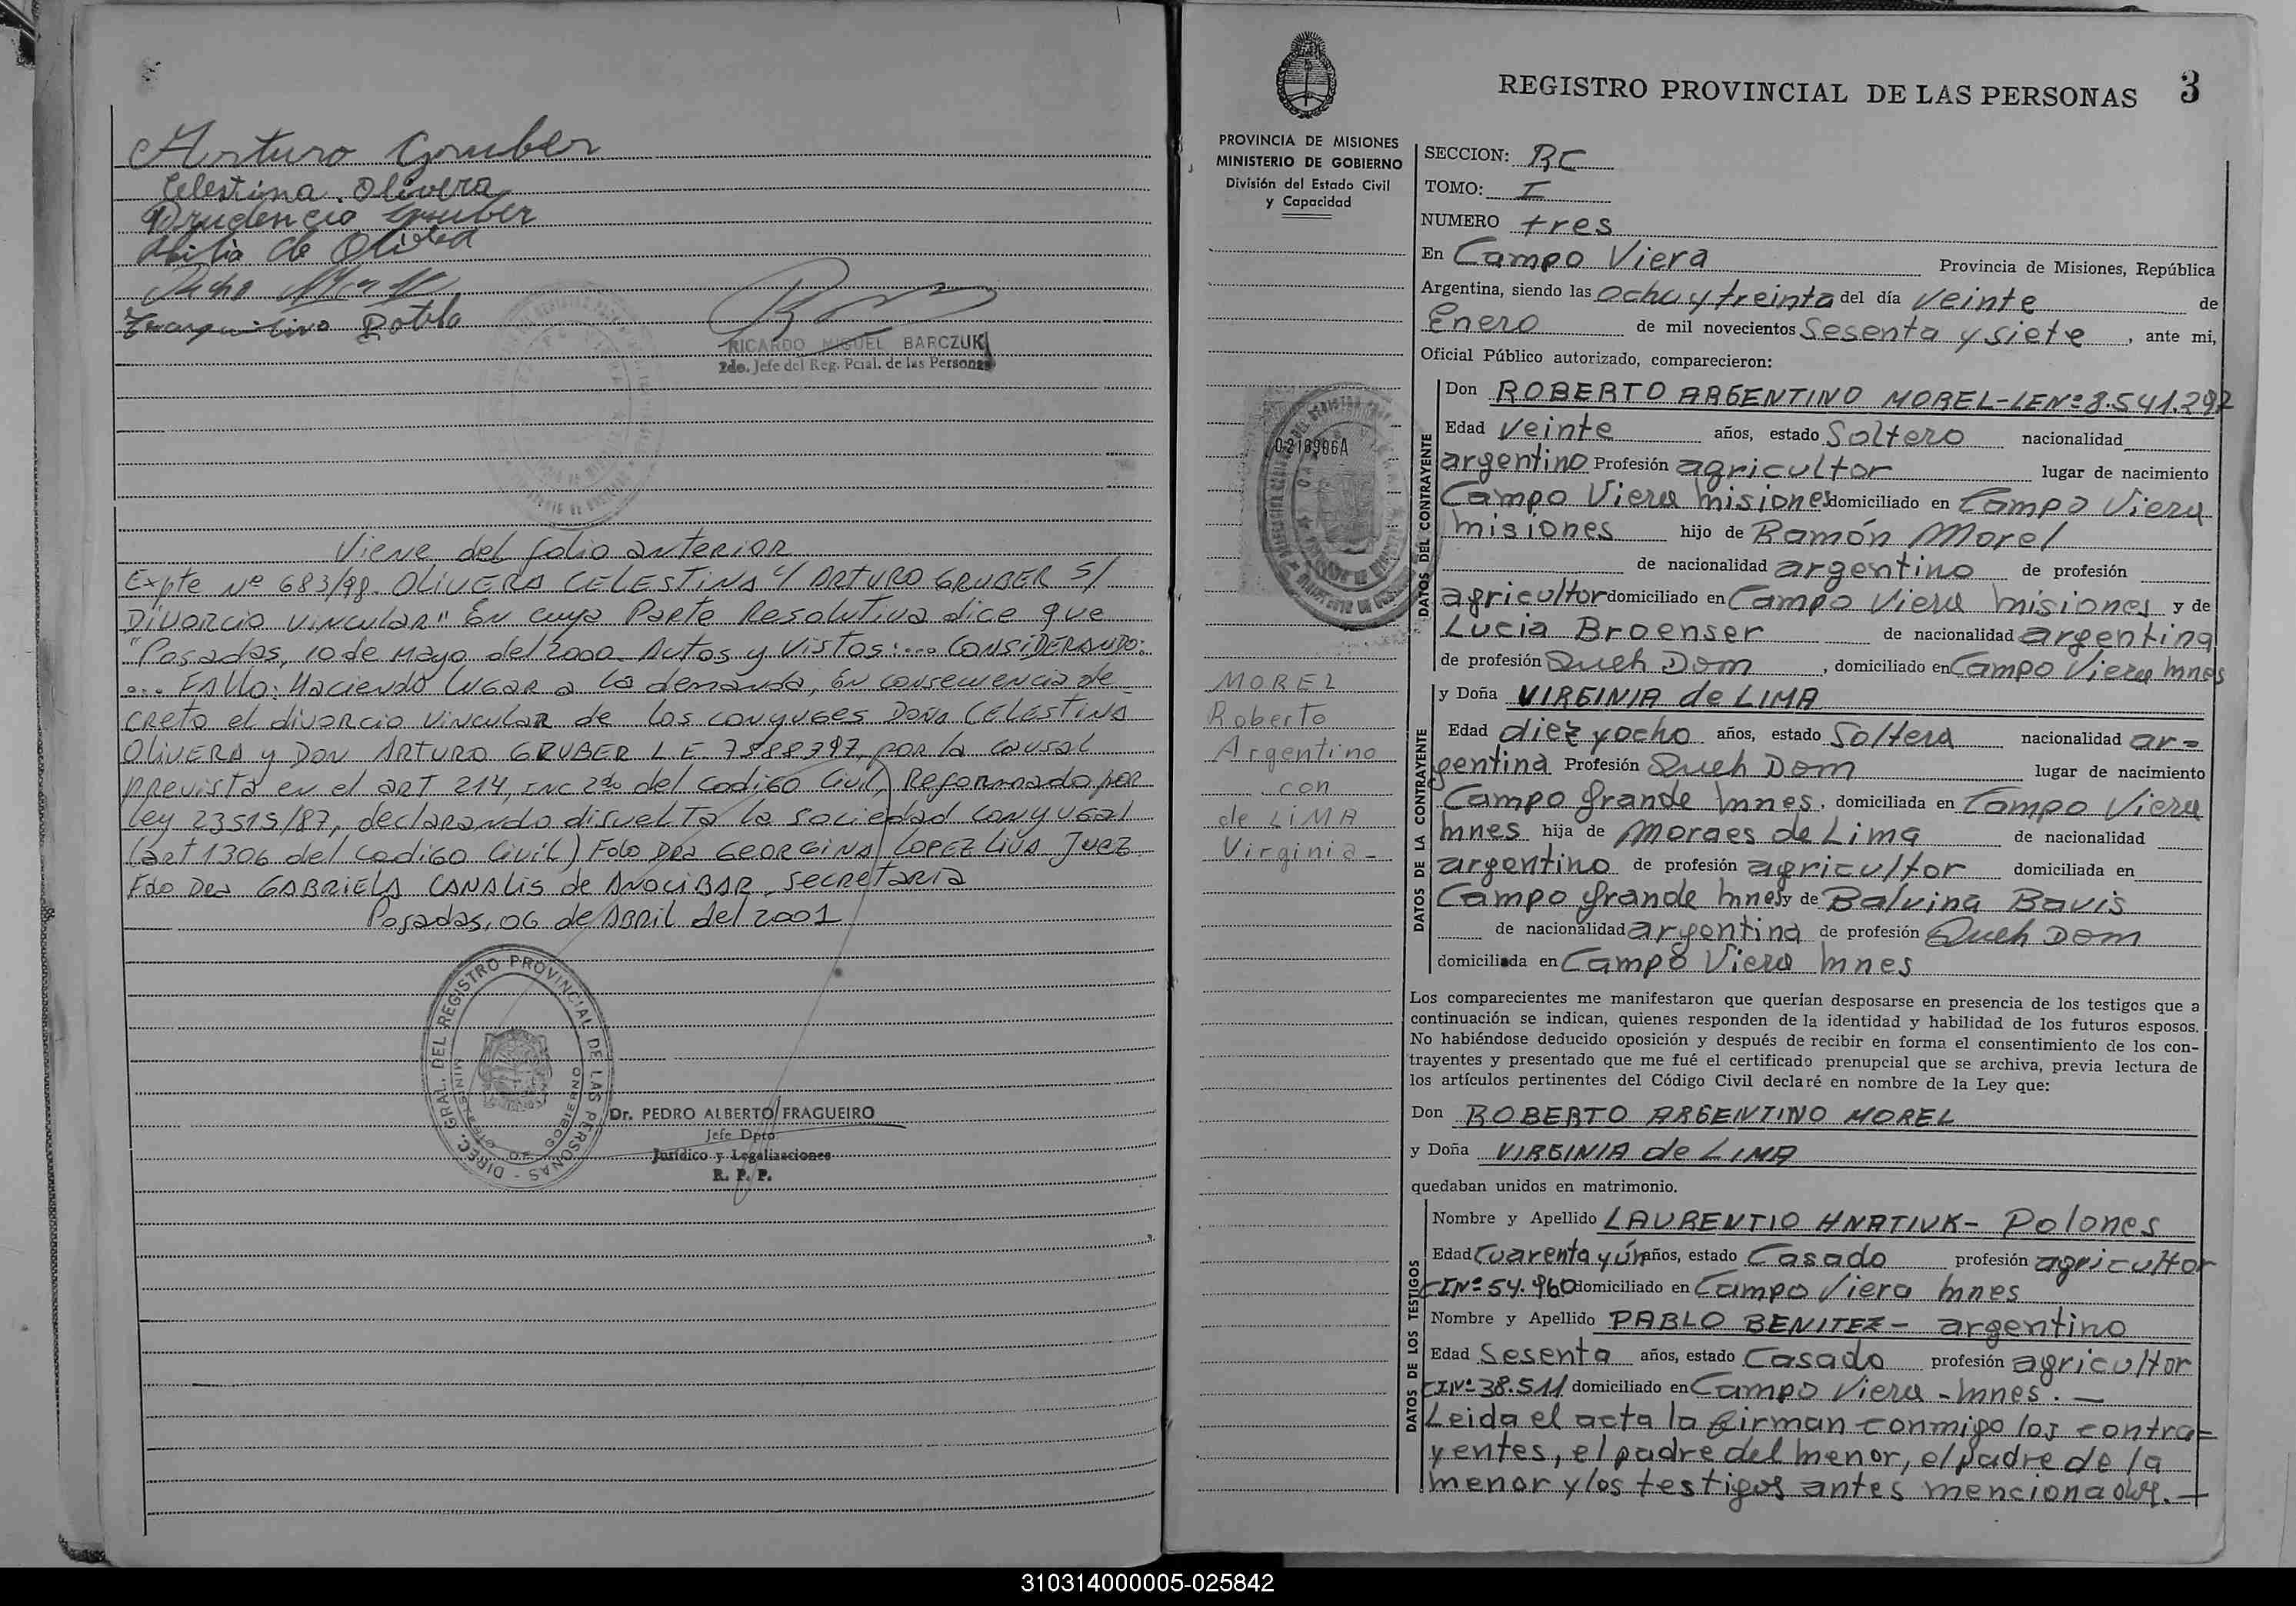 Arturo Gruber
Celestina Olivera
Prudencio Gruber
de Olivera
Botelo
RICARDO MIGUEL BARCZUK
2do. Jefe del Reg. Pcial. de las Personas
Viene del folio anterior
Expte Nº 683/98. OLIVERA CELESTINA c/ ARTURO GRUBER S/
Divorcio vincular" En cuya Parte Resolutiva dice que
"Posadas, 10 de Mayo del 2000. Autos y Vistos:... CONSIDERANDO:
... FALLO: Haciendo lugar a la demanda, en consecuencia de
creto el divorcio vincular de los conyuges Doña CELESTINA
OLIVERA y DON ARTURO GRUBER L.E. 7.888.797, por la causal
prevista en el art 214, inc 2do del Codigo Civil, Reformado por
Ley 23515/87, declarando disuelta la sociedad conyugal
(art 1306 del Codigo Civil) Fdo Dra GEORGINA LOPEZ LIVA Juez
Fdo Dra GABRIELA CANALIS de ANOCIBAR, secretaria
Posadas, 06 de Abril del 2001
DIREC. GRAL. DEL REGISTRO PROVINCIAL DE LAS PERSONAS
MINISTERIO DE GOBIERNO
Dr. PEDRO ALBERTO FRAGUEIRO
Jefe Dpto.
Jurídico y Legalizaciones
R. P. P.
REGISTRO PROVINCIAL DE LAS PERSONAS 3
PROVINCIA DE MISIONES
MINISTERIO DE GOBIERNO
División del Estado Civil
y Capacidad
0218906A
MOREL
Roberto
Argentino
con
de LIMA
Virginia-
SECCION: RC
TOMO: I
NUMERO tres
En Campo Viera Provincia de Misiones, República
Argentina, siendo las ocho y treinta del día veinte de
Enero de mil novecientos Sesenta y siete, ante mi,
Oficial Público autorizado, comparecieron:
DATOS DEL CONTRAYENTE
Don ROBERTO ARGENTINO MOREL-LENº8.541.297
Edad veinte años, estado Soltero nacionalidad
argentino Profesión agricultor lugar de nacimiento
Campo Viera misiones domiciliado en Campo Viera
misiones hijo de Ramón Morel
de nacionalidad argentino de profesión
agricultor domiciliado en Campo Viera misiones y de
Lucia Broenser de nacionalidad argentina
de profesión Queh Dom, domiciliado en Campo Viera mnes
DATOS DE LA CONTRAYENTE
y Doña VIRGINIA de LIMA
Edad diez y ocho años, estado Soltera nacionalidad ar=
gentina Profesión Queh Dom lugar de nacimiento
Campo Grande mnes, domiciliada en Campo Viera
mnes hija de Moraes de Lima de nacionalidad
argentino de profesión agricultor domiciliada en
Campo Grande mnes y de Balvina Bavis
de nacionalidad argentina de profesión Queh Dom
domiciliada en Campo Viera mnes
Los comparecientes me manifestaron que querían desposarse en presencia de los testigos que a
continuación se indican, quienes responden de la identidad y habilidad de los futuros esposos.
No habiéndose deducido oposición y después de recibir en forma el consentimiento de los con-
trayentes y presentado que me fué el certificado prenupcial que se archiva, previa lectura de
los artículos pertinentes del Código Civil declaré en nombre de la Ley que:
Don ROBERTO ARGENTINO MOREL
y Doña VIRGINIA de LIMA
quedaban unidos en matrimonio.
DATOS DE LOS TESTIGOS
Nombre y Apellido LAURENTIO HNATIUK- Polones
Edad Cuarenta y ún años, estado Casado profesión agricultor
CINº54.960 domiciliado en Campo Viera mnes
Nombre y Apellido PABLO BENITEZ- argentino
Edad Sesenta años, estado Casado profesión agricultor
CINº38.511 domiciliado en Campo Viera - mnes. -
Leida el acta la firman conmigo los contra=
yentes, el padre del menor, el padre de la
menor y los testigos antes mencionados. -
310314000005-025842